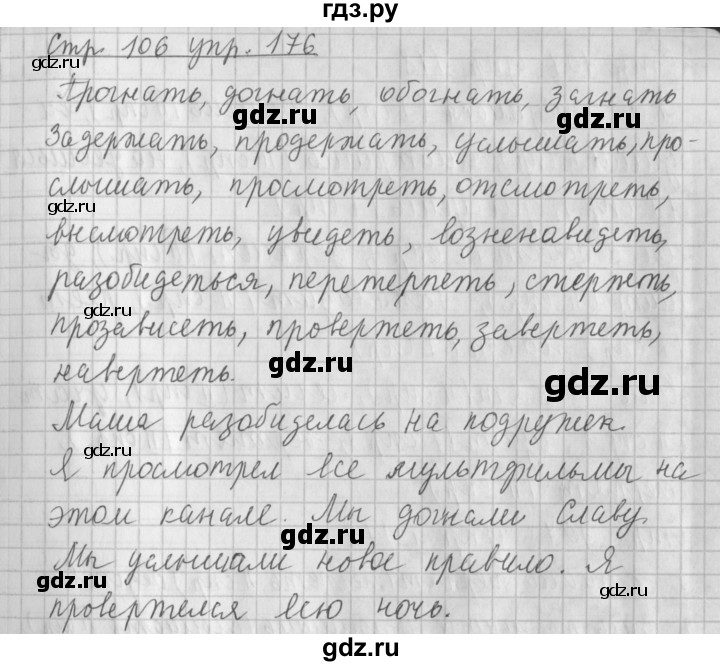 гдз.ру
Стр. 106 упр. 176
gdz.ru
Прогнать, догнать, обогнать, загнать
gdz.ru gdz.ru
Задержать, продержать, услышать, про-
слышать, просмотреть, отсмотреть,
gdz.ru
высмотреть, увидеть, возненавидеть,
gdz.ru gdz.ru
разобидеться, перетерпеть, стерпеть,
gdz.ru
прозависеть, провертеть, завертеть,
навертеть.
gdz.ru gdz.ru
Маша разобиделась на подружек.
gdz.ru
Я просмотрел все мультфильмы на
этом канале. Мы догнали Славу.
gdz.ru
Мы услышали новое правило. Я
gdz.ru gdz.ru
провертелся всю ночь.
gdz.ru